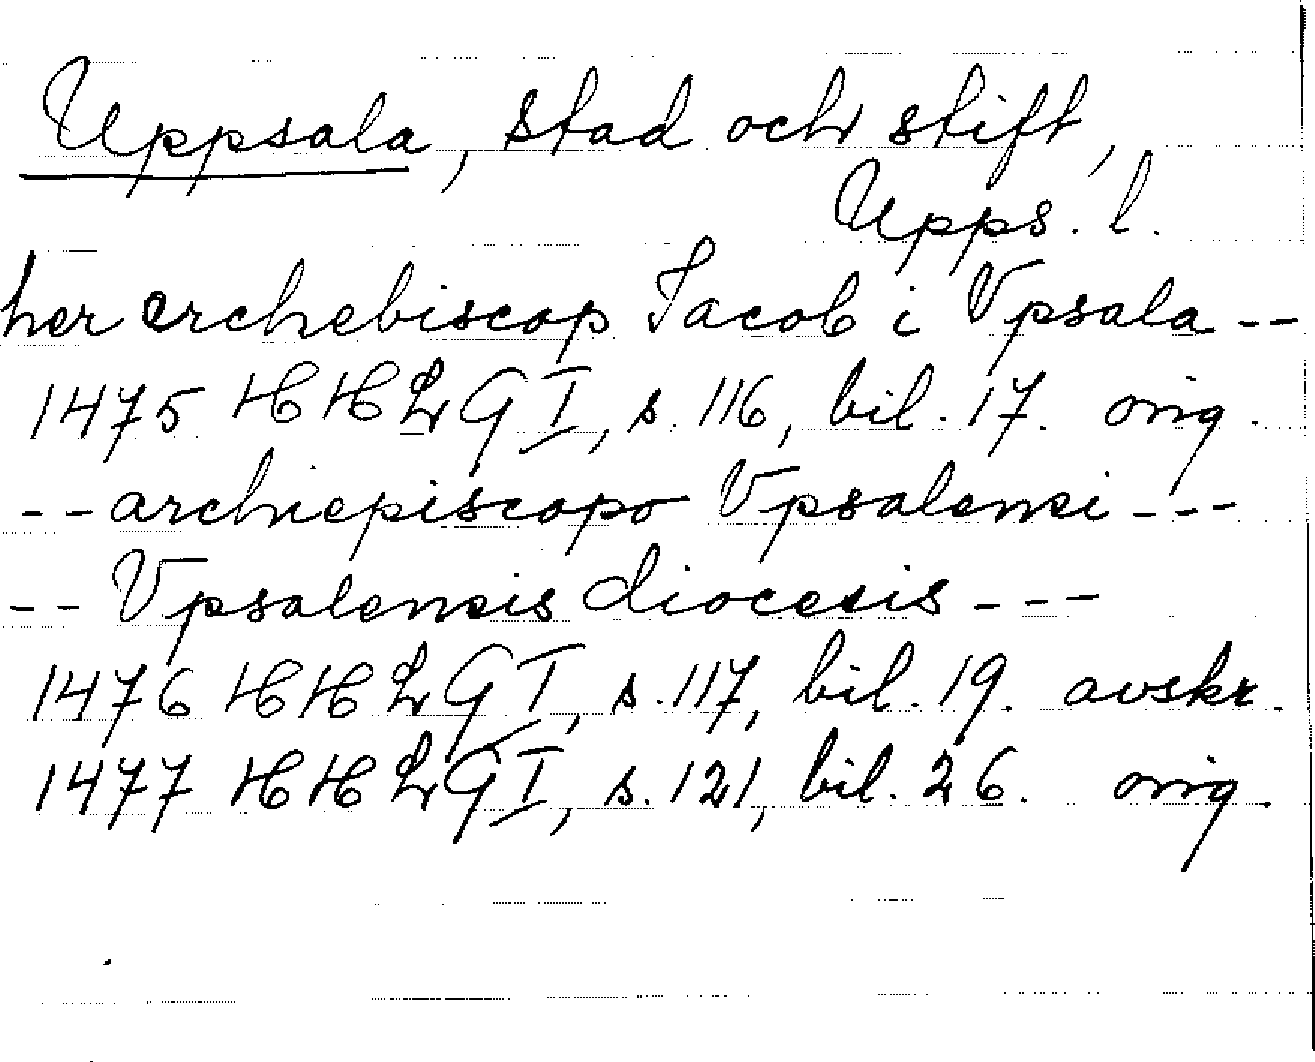 Uppsala, stad och stift,
Upps. l.
her erchebiscop Jacob i Vpsala --
1475 HHLG I, s. 116, bil. 17. orig.
-- archiepiscopo Vpsalensi ---
-- Vpsalensis diocesis ---
1476 HHLG I, s. 117, bil. 19. avskr.
1477 HHLG I, s. 121, bil. 26. orig.